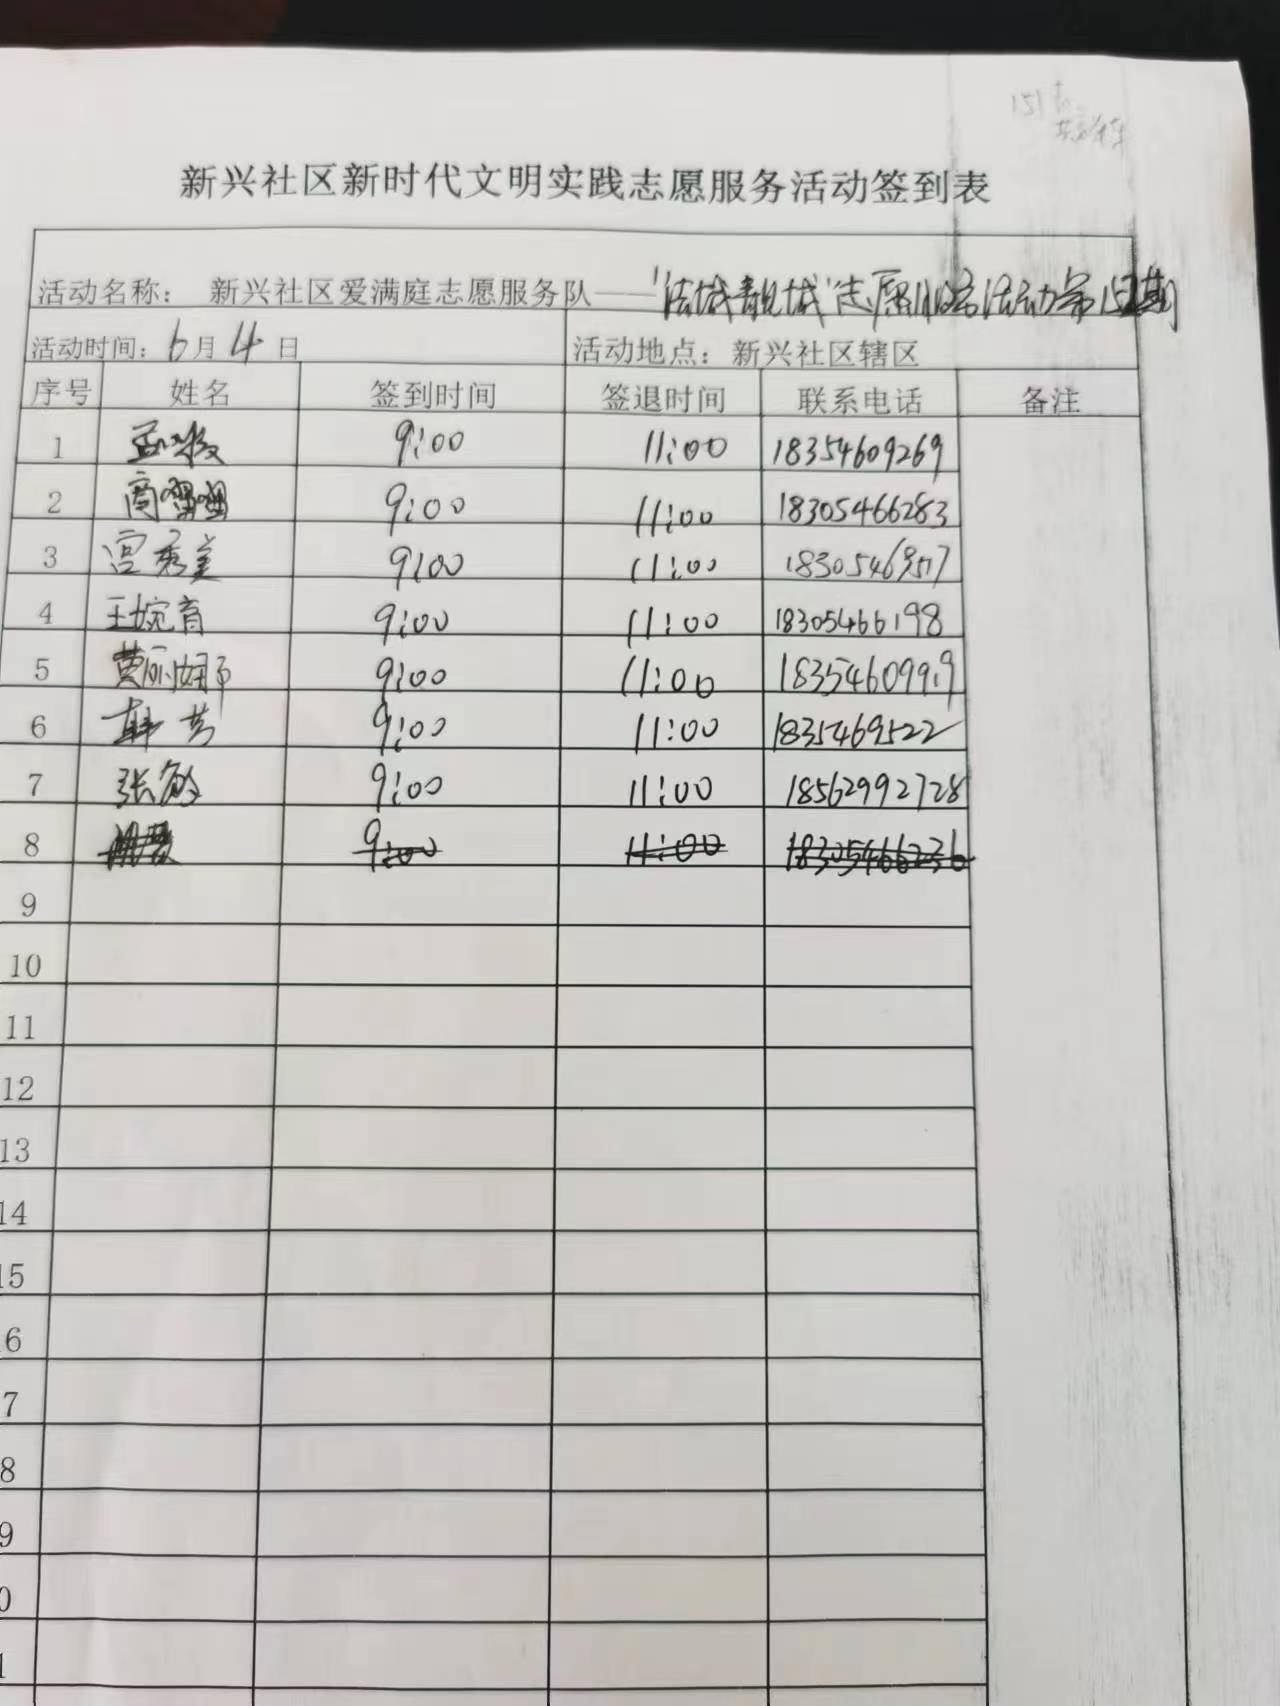 151
新兴社区新时代文明实践志愿服务活动签到表
活动名称： 新兴社区爱满庭志愿服务队——"洁城靓城"志愿服务活动第 期
活动时间：6月4日 活动地点：新兴社区辖区
序号 姓名 签到时间 签退时间 联系电话 备注
1 孟 9:00 11:00 18354609269
2 商 9:00 11:00 18305466283
3 宫秀美 9:00 11:00 1830546
4 王婉育 9:00 11:00 18305466198
5 黄丽娜 9:00 11:00 18354609919
6 韩芳 9:00 11:00 1835469522
7 张敏 9:00 11:00 18562992728
8 9:00 11:00 18305466236
9
10
11
12
13
14
15
6
7
8
9
0
1